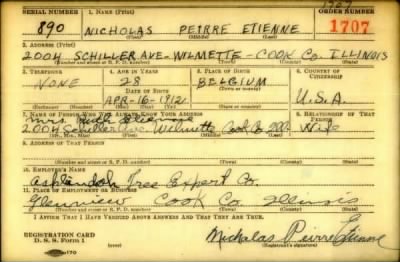 1707
SERIAL NUMBER 1. NAME (Print) ORDER NUMBER
890 NICHOLAS PEIRRE ETIENNE 1707
(First) (Middle) (Last)
2. ADDRESS (Print)
2004 SCHILLER AVE - WILMETTE - COOK CO. ILLINOIS
(Number and street or R. F. D. number) (Town) (County) (State)
3. TELEPHONE 4. AGE IN YEARS 5. PLACE OF BIRTH 6. COUNTRY OF CITIZENSHIP
NONE 28 BELGIUM U.S.A.
DATE OF BIRTH (Town or county)
APR-16-1912
(Mo.) (Day) (Yr.) (State or country)
7. NAME OF PERSON WHO WILL ALWAYS KNOW YOUR ADDRESS 8. RELATIONSHIP OF THAT PERSON
Mrs. Ruth Etienne
2004 Schiller Ave. Wilmette Cook Co Ill. Wife
(Mr., Mrs., Miss) (First) (Middle) (Last)
9. ADDRESS OF THAT PERSON
(Number and street or R. F. D. number) (Town) (County) (State)
10. EMPLOYER'S NAME
Tree Expert Co.
11. PLACE OF EMPLOYMENT OR BUSINESS
Glenview Cook Co. Illinois
(Number and street or R. F. D. number) (Town) (County) (State)
I AFFIRM THAT I HAVE VERIFIED ABOVE ANSWERS AND THAT THEY ARE TRUE.
REGISTRATION CARD
D. S. S. Form 1 Nicholas Peirre Etienne
(Registrant's signature)